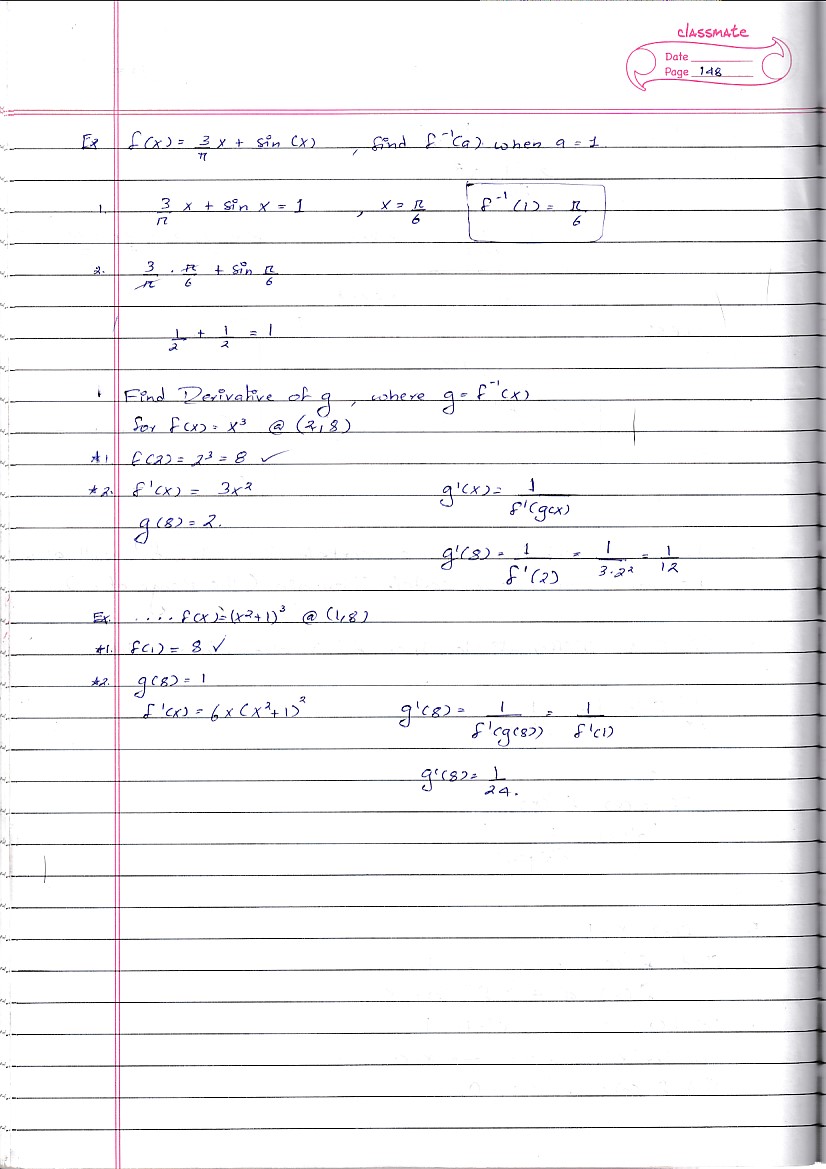 classmate
Date
Page 148
Ex f(x) = 3/π x + sin (x) , find f⁻¹(a) when a = 1
1. 3/π x + sin x = 1 , x = π/6 f⁻¹(1) = π/6
2. 3/π · π/6 + sin π/6
1/2 + 1/2 = 1
Find Derivative of g , where g = f⁻¹(x)
for f(x) = x³ @ (2,8)
*1 f(2) = 2³ = 8 ✓
*2. f'(x) = 3x² g'(x) = 1/f'(g(x)
g(8) = 2.
g'(8) = 1/f'(2) = 1/3·2² = 1/12
Ex. .... f(x) = (x²+1)³ @ (1,8)
*1. f(1) = 8 ✓
*2. g(8) = 1
f'(x) = 6x(x²+1)² g'(8) = 1/f'(g(8)) = 1/f'(1)
g'(8) = 1/24.